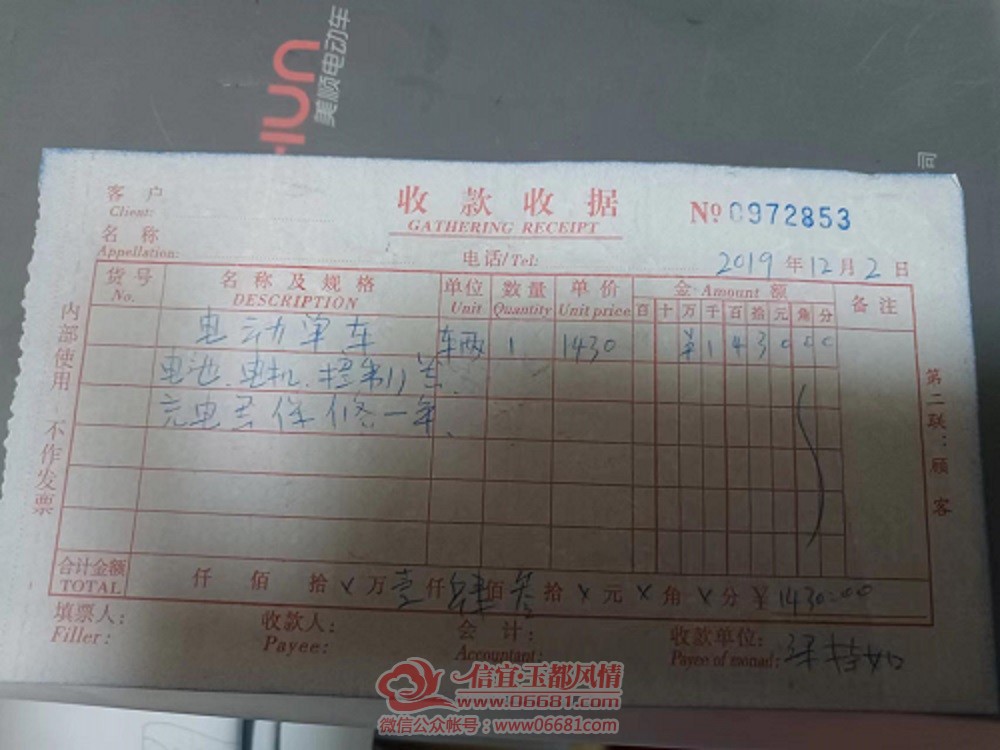 HUN
美顺电动车
司
客 户
Client:
收款收据
GATHERING RECEIPT
№ 0972853
名 称
Appellation:
电话/Tel:
2019 年 12 月 2 日
货号 名称及规格 单位 数量 单价 金 Amount 额 备注
No. DESCRIPTION Unit Quantity Unit price 百 十 万 千 百 拾 元 角 分
电动单车 车辆 1 1430 ¥ 1 4 3 0 0 0
电池、电机、控制器
充电器保修一年、
内部使用 不作发票
第二联:顾客
合计金额 仟 佰 拾 x 万 壹 仟 肆 佰 叁 拾 x 元 x 角 x 分 ¥ 1430.00
TOTAL
填票人: 收款人: 会 计: 收款单位:
Filler: Payee: Accountant: Payee of monad:
信宜玉都风情
www.06681.com
微信公众帐号:www06681com